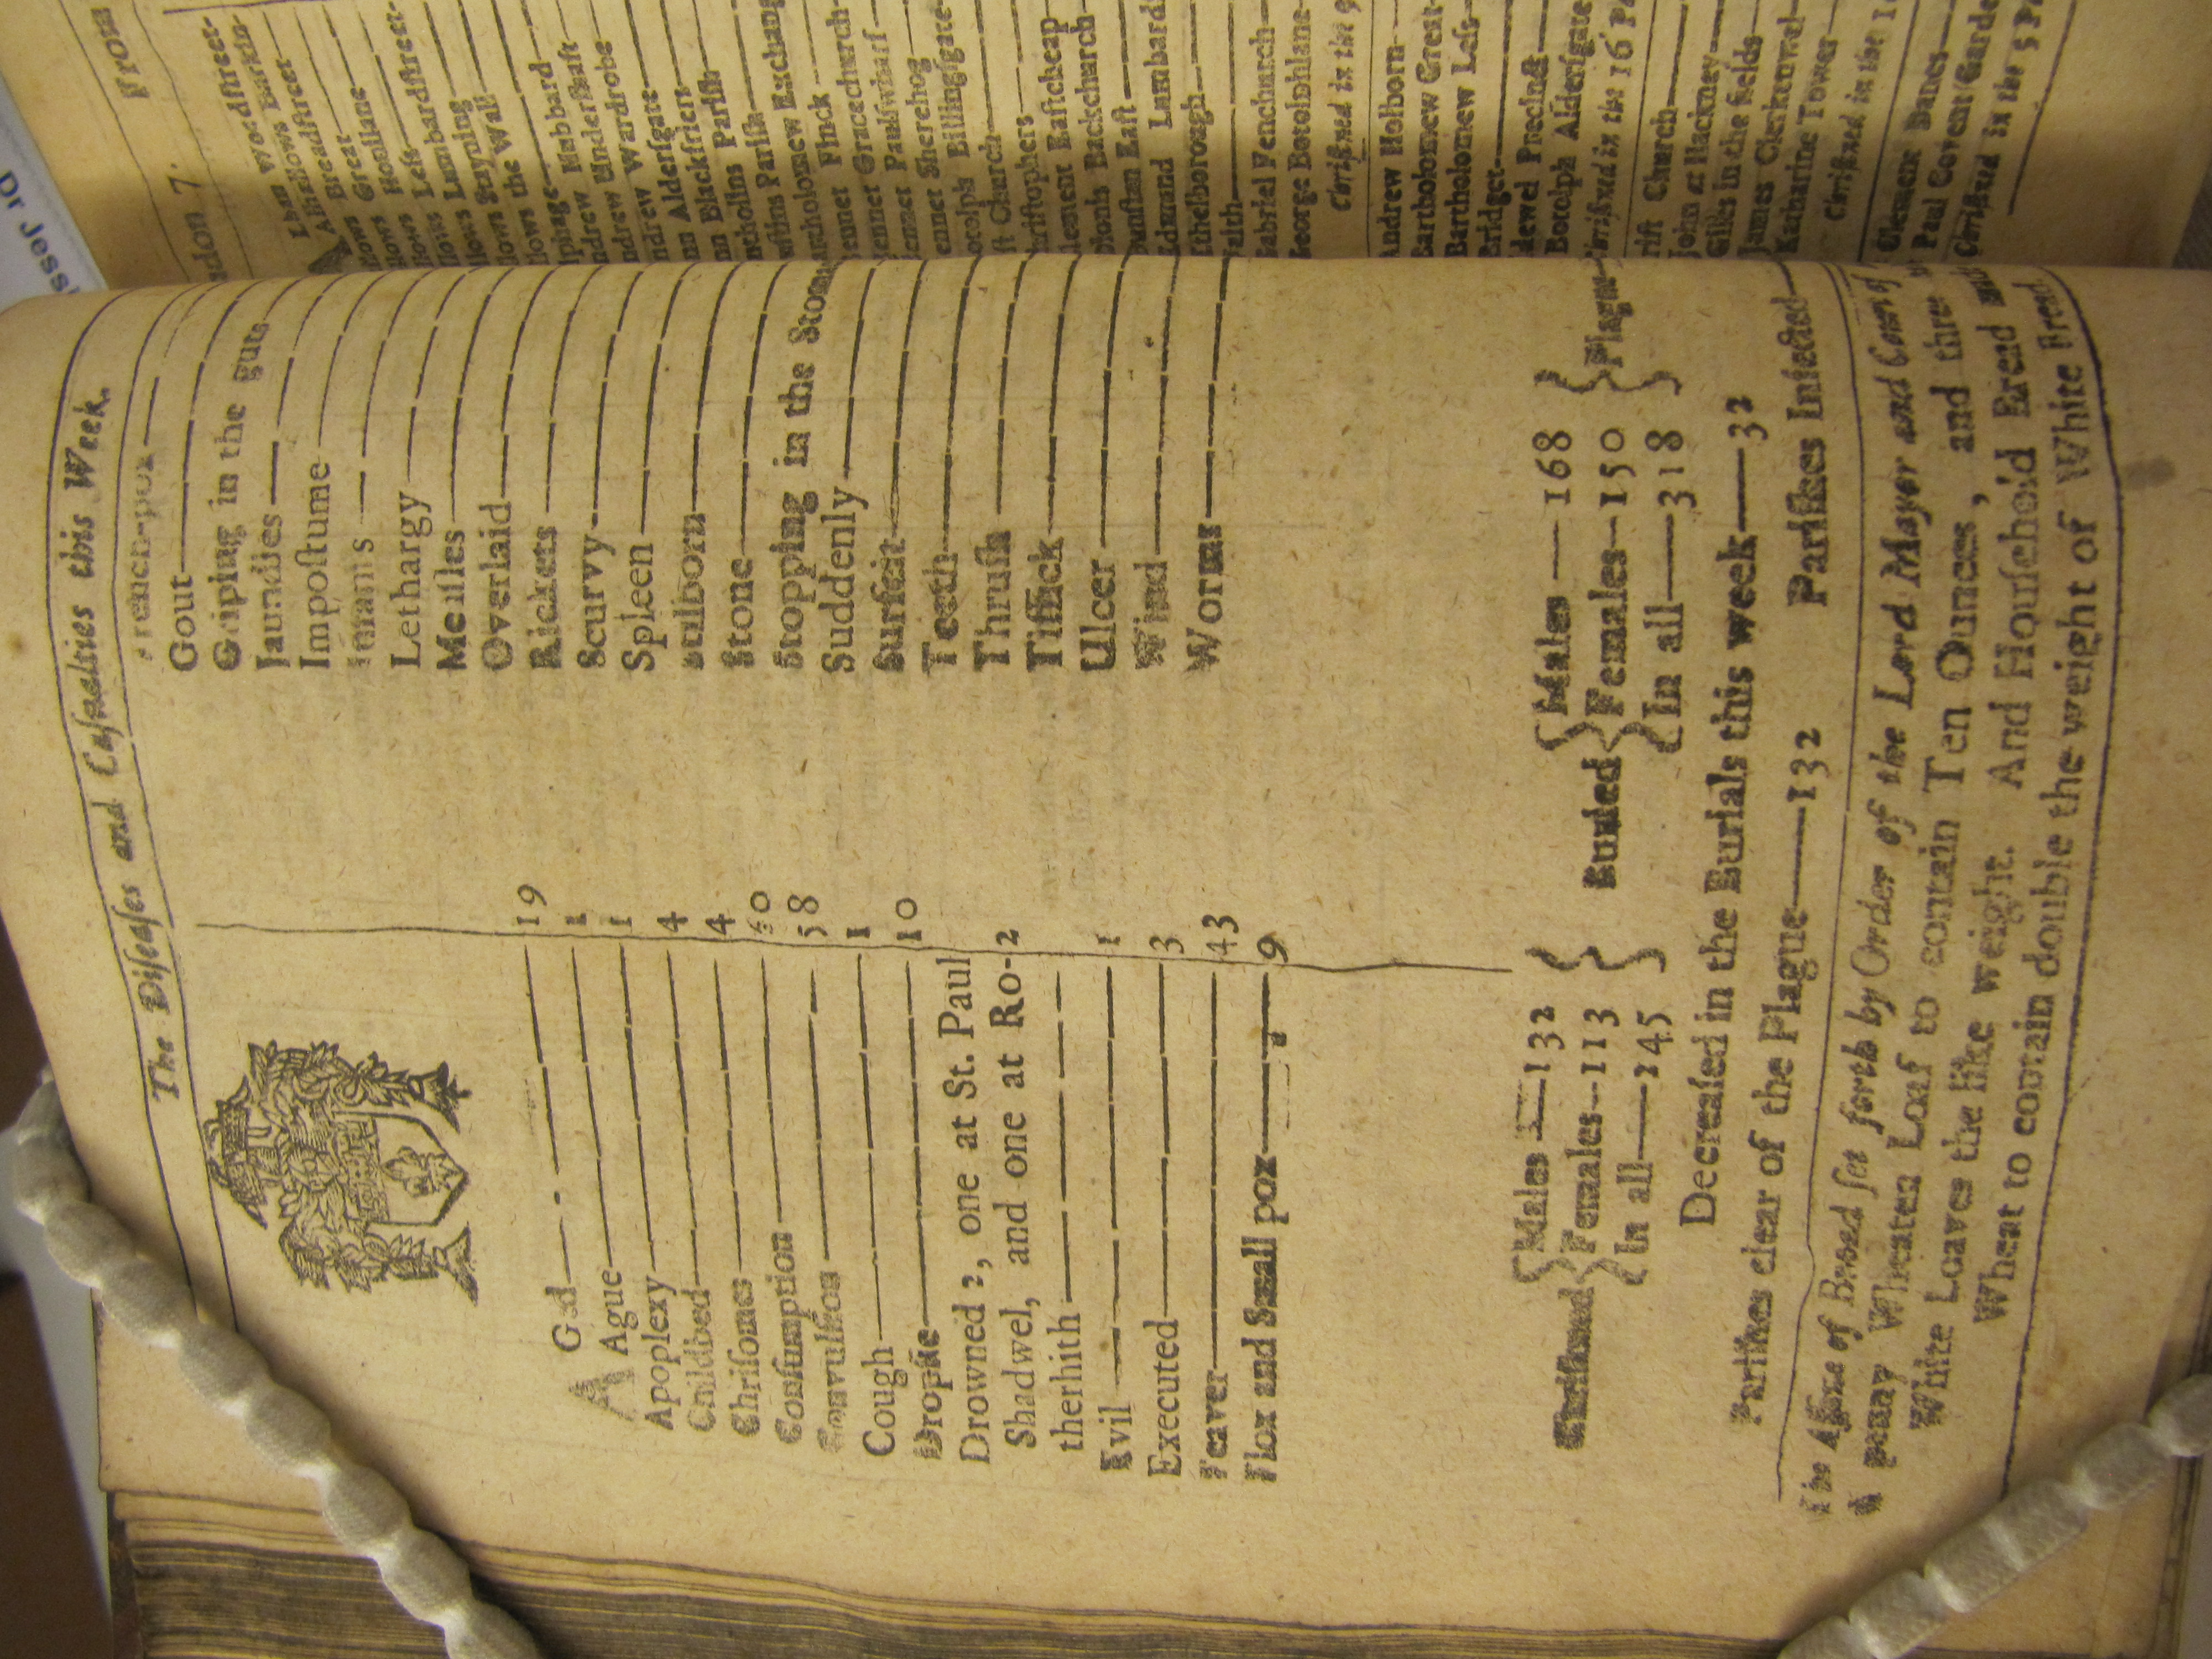 The Diſeaſes and Caſualties this Week.
Aged 19
Ague 1
Apoplexy 1
Childbed 4
Chriſomes 4
Conſumption
Convulſion 58
Cough 1
Dropſie 10
Drowned 2, one at St. Paul
Shadwel, and one at Ro-
therhith 2
Evil 1
Executed 3
Feaver 43
Flox and Small pox 9
French-pox
Gout
Griping in the guts
Jaundies
Impoſtume
Infants
Lethargy
Meaſles
Overlaid
Rickets
Scurvy
Spleen
Stilborn
Stone
Stopping in the
Suddenly
Surfeit
Teeth
Thruſh
Tiſſick
Ulcer
Wind
Worms
Chriſtned
Males 132
Females 113
In all 245
Buried
Males 168
Females 150
In all 318
Plague
Decreaſed in the Burials this week 32
Pariſhes clear of the Plague 132 Pariſhes Infected
The Aſſize of Bread ſet forth by Order of the Lord Mayor and Court of
A penny Wheaten Loaf to contain Ten Ounces, and three
White Loaves the like weight. And Houſehold Bread
Wheat to contain double the weight of White Bread
From
7.
Woodſtreet
Barkin
Breadſtreet
Great
Honilane
Leſs
Lumbardſtreet
Stayning
the Wall
Hubbard
Underſhaft
Wardrobe
Alderſgate
Blackfriers
Pariſh
Pariſh
Exchang
Finck
Gracechurch
Paulſwharf
Sherehog
Billingſgate
Church
Eaſtcheap
Backchurch
Eaſt
Edmund Lumbard
Ethelborough
Faith
Gabriel Fenchurch
George Botolphlane
Chriſtned in the 9
Andrew Holborn
Bartholomew Great
Bartholomew Leſs
Bridget
Bridewel Precinct
Botolph Alderſgate
Chriſtned in the 16 Pa
Chriſt Church
John at Hackney
Giles in the fields
James Clerkenwel
Katharine Tower
Chriſtned in the
Clement Danes
Paul Covent Garde
Chriſtned in the 5 Pa
Dr Jess